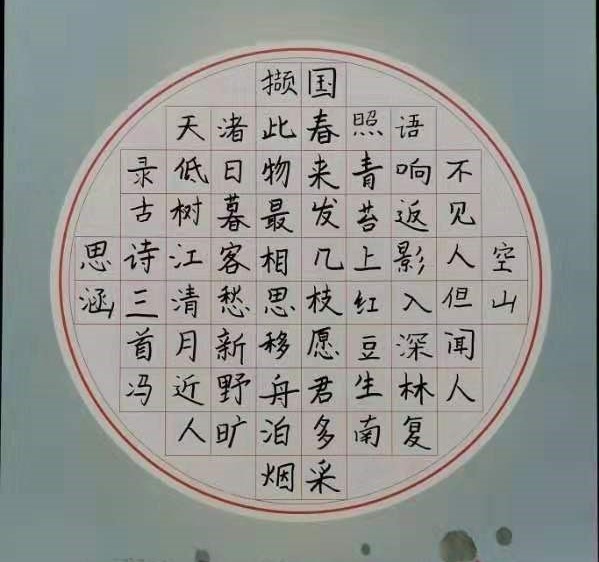 空山
不见人但闻人
语响返影入深林复
照青苔上红豆生南
国春来发几枝愿君多采
撷此物最相思移舟泊烟
渚日暮客愁新野旷
天低树江清月近人
录古诗三首冯
思涵